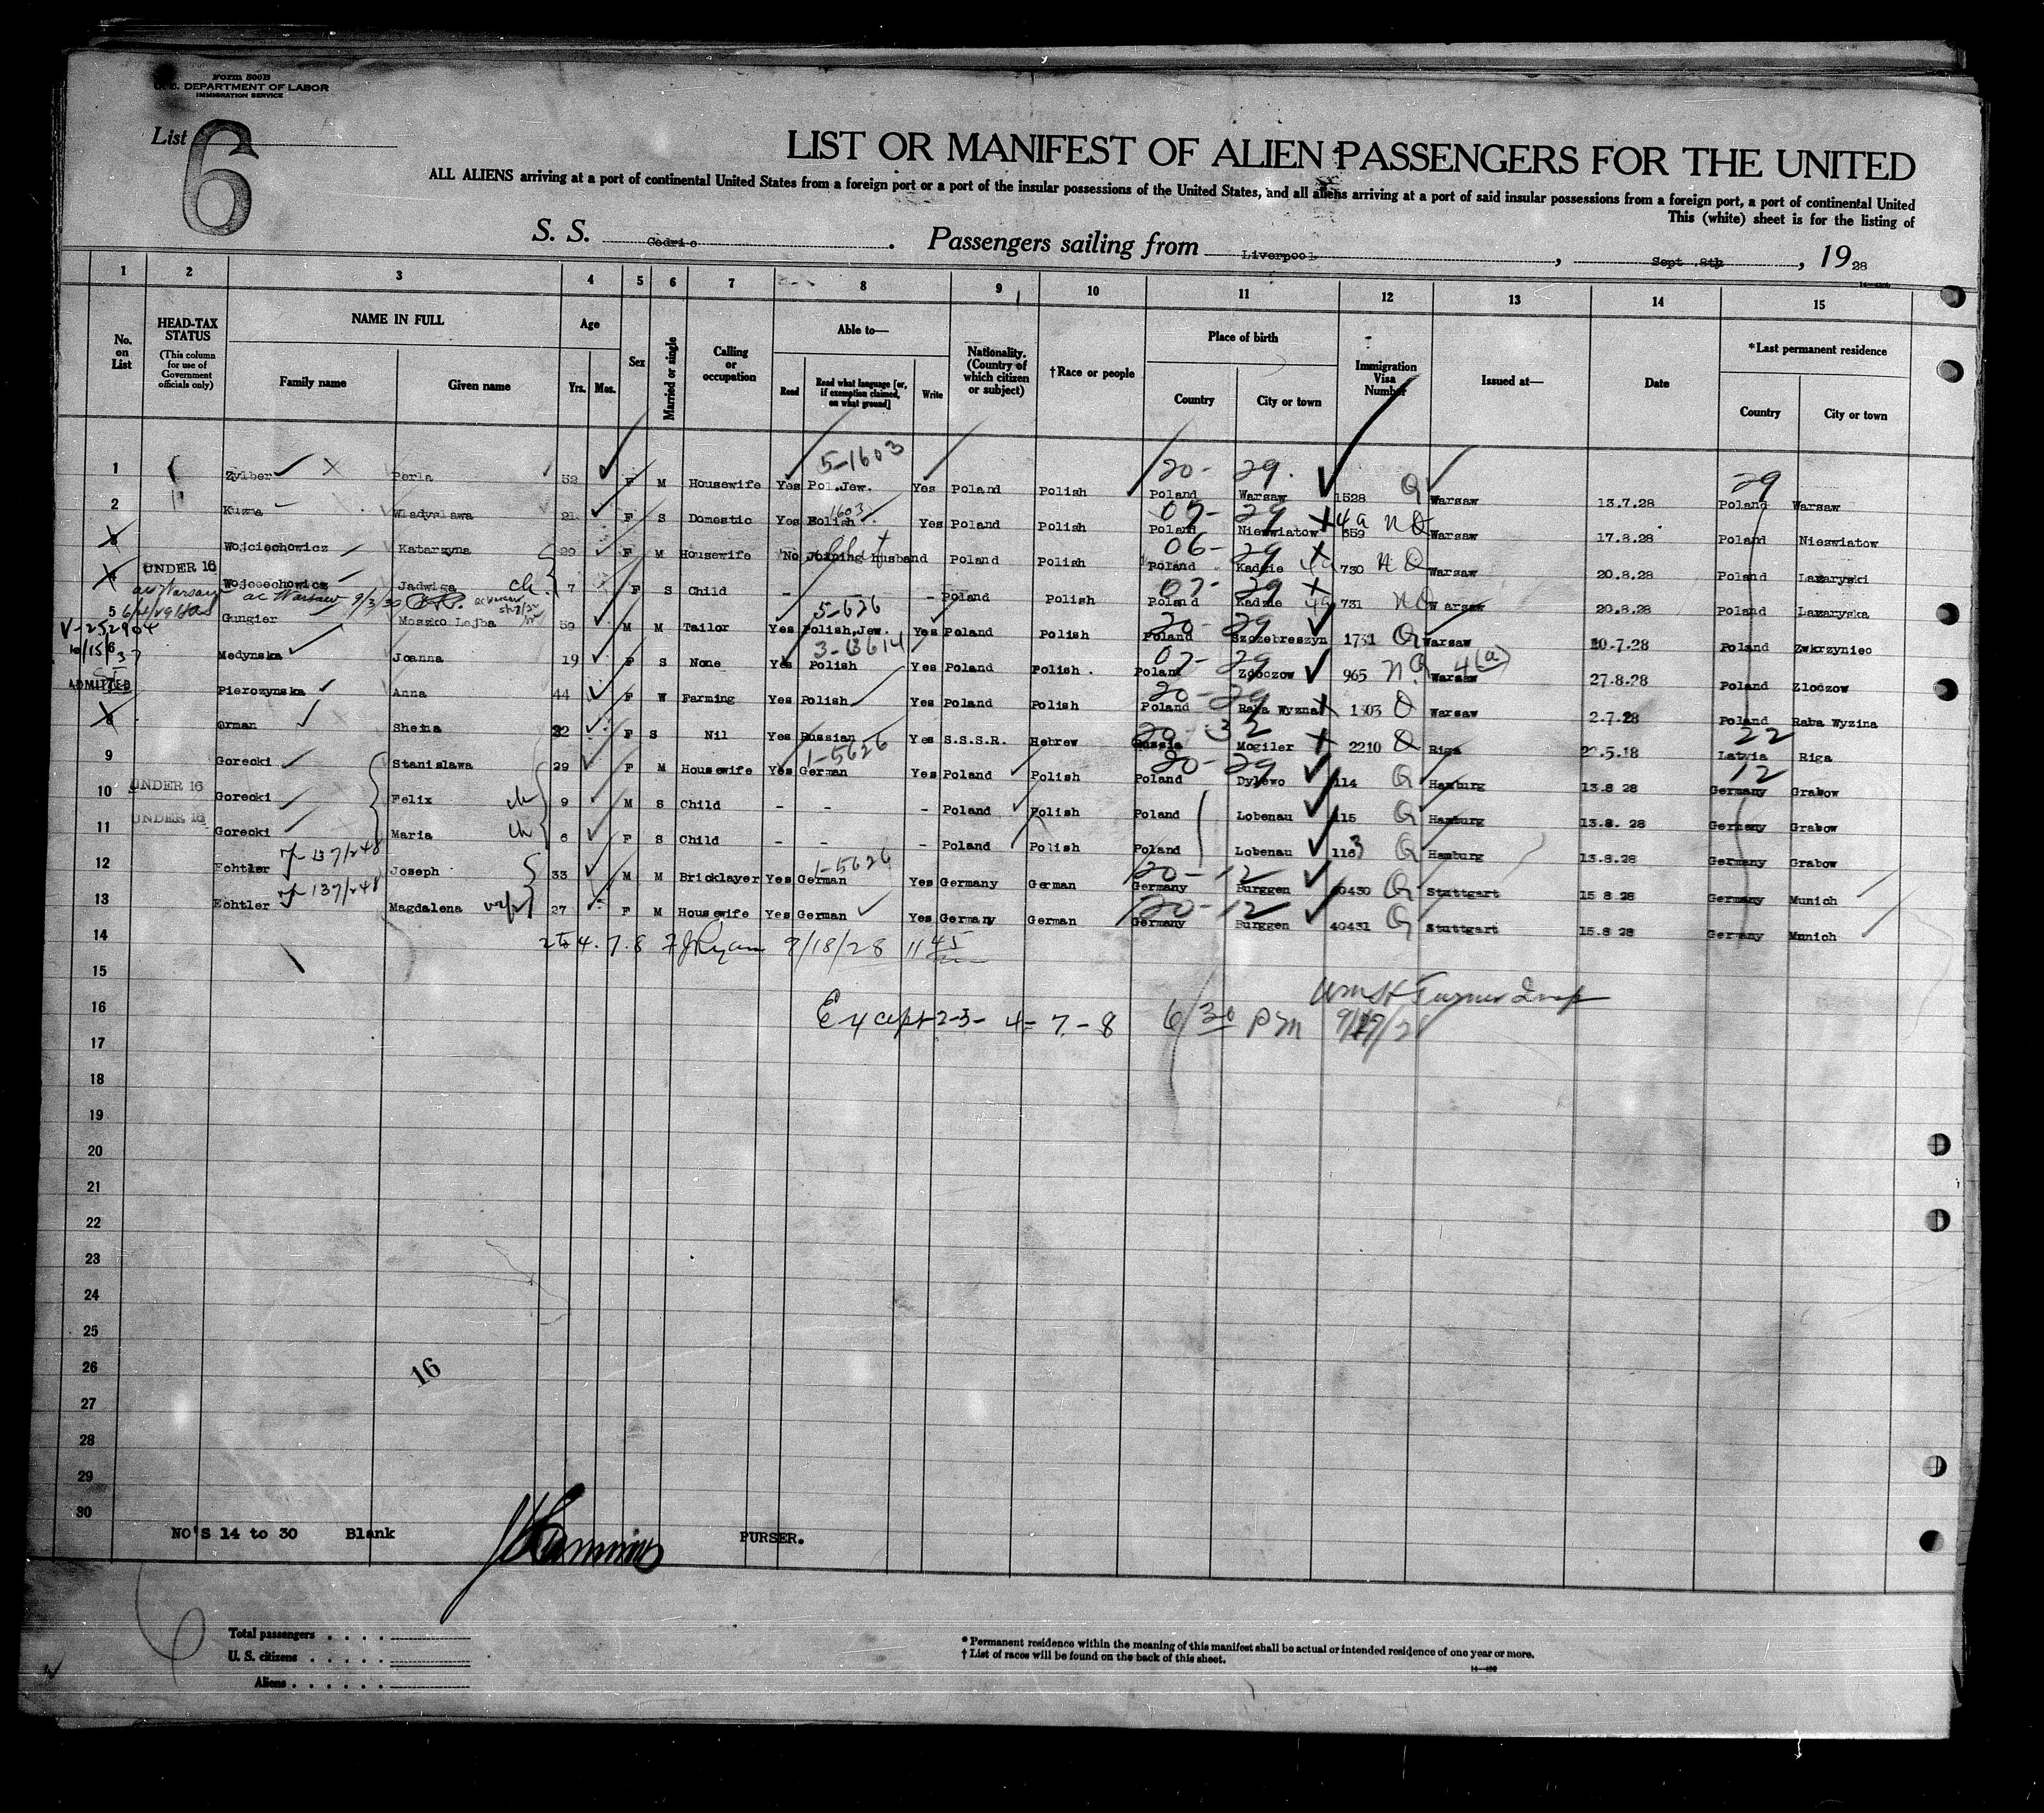 Form 500B
U. S. DEPARTMENT OF LABOR
IMMIGRATION SERVICE
List 6
LIST OR MANIFEST OF ALIEN PASSENGERS FOR THE UNITED
ALL ALIENS arriving at a port of continental United States from a foreign port or a port of the insular possessions of the United States, and all aliens arriving at a port of said insular possessions from a foreign port, a port of continental United
This (white) sheet is for the listing of
S. S. Cedric . Passengers sailing from Liverpool , Sept. 8th , 19 28
1 2 3 4 5 6 7 8 9 10 11 12 13 14 15
No. on List
HEAD-TAX STATUS
(This column for use of Government officials only)
NAME IN FULL
Family name Given name
Age
Yrs. Mos.
Sex
Married or single
Calling or occupation
Able to—
Read Read what language [or, if exemption claimed, on what ground] Write
Nationality. (Country of which citizen or subject)
†Race or people
Place of birth
Country City or town
Immigration Visa Number
Issued at—
Date
*Last permanent residence
Country City or town
5-1603 20- 29. 29
1 Zylber Perla 52 F M Housewife Yes Pol.Jew. Yes Poland Polish Poland Warsaw 1528 Q Warsaw 13.7.28 Poland Warsaw
1603 07- 29
2 Kuzma Wladyslawa 21 F S Domestic Yes Polish Yes Poland Polish Poland Nieswiatow 4a 559 N Q Warsaw 17.8.28 Poland Nieswiatow
06- 29
3 Wojciechowicz Katarzyna 29 F M Housewife No Joining Husband Poland Polish Poland Kadzie 4a 730 N Q Warsaw 20.8.28 Poland Lazaryski
UNDER 16 07- 29
4 Wojceechowicz Jadwiga ch. 7 F S Child - - - Poland Polish Poland Kadzie 4a 731 N Q Warsaw 20.8.28 Poland Lazaryska
ac Warsaw 9/3/30
5-626 20- 29
5 Gungier Moszko Lejba 59 M M Tailor Yes Polish,Jew. Yes Poland Polish Poland Szczebreszyn 1731 Q Warsaw 20.7.28 Poland Zwkrzyniec
V-252904
3-B614 07- 29
Medynska Joanna 19 F S None Yes Polish Yes Poland Polish. Poland Zdoczow 965 N.Q 4(a) Warsaw 27.8.28 Poland Zloczow
ADMITTED 20- 29
Pierozynska Anna 44 F W Farming Yes Polish Yes Poland Polish Poland Raba Wyzna 1303 Q Warsaw 2.7.28 Poland Raba Wyzina
20- 32 22
8 Orman Sheina 22 F S Nil Yes Russian Yes S.S.S.R. Hebrew Russia Mogiler 2210 Q Riga 22.5.18 Latvia Riga
1-5626 20- 29 12
9 Gorecki Stanislawa 29 F M Housewife Yes German Yes Poland Polish Poland Dylewo 114 Q Hamburg 13.8 28 Germany Grabow
10 UNDER 16 Gorecki Felix ch 9 M S Child - - - Poland Polish Poland Lobenau 115 Q Hamburg 13.8. 28 Germany Grabow
11 UNDER 16 Gorecki Maria ch 6 F S Child - - - Poland Polish Poland Lobenau 116 Q Hamburg 13.8.28 Germany Grabow
137/248 1-5626 20-12
12 Echtler Joseph 33 M M Bricklayer Yes German Yes Germany German Germany Burggen 40430 Q Stuttgart 15 8 28 Germany Munich
137/248 20-12
13 Echtler Magdalena wife 27 F M Housewife Yes German Yes Germany German Germany Burggen 40431 Q Stuttgart 15.8 28 Germany Munich
14 2 to 4. 7. 8 F J Ryan 9/18/28 11 45
15
16 Except 2-3- 4- 7-8 6/30 PM
Wm H Turner Insp
17
18
19
20
21
22
23
24
25
26
16
27
28
29
30
NO'S 14 to 30 Blank PURSER.
6
Total passengers . . . .
U. S. citizens . . . . .
Aliens . . . . . .
* Permanent residence within the meaning of this manifest shall be actual or intended residence of one year or more.
† List of races will be found on the back of this sheet.